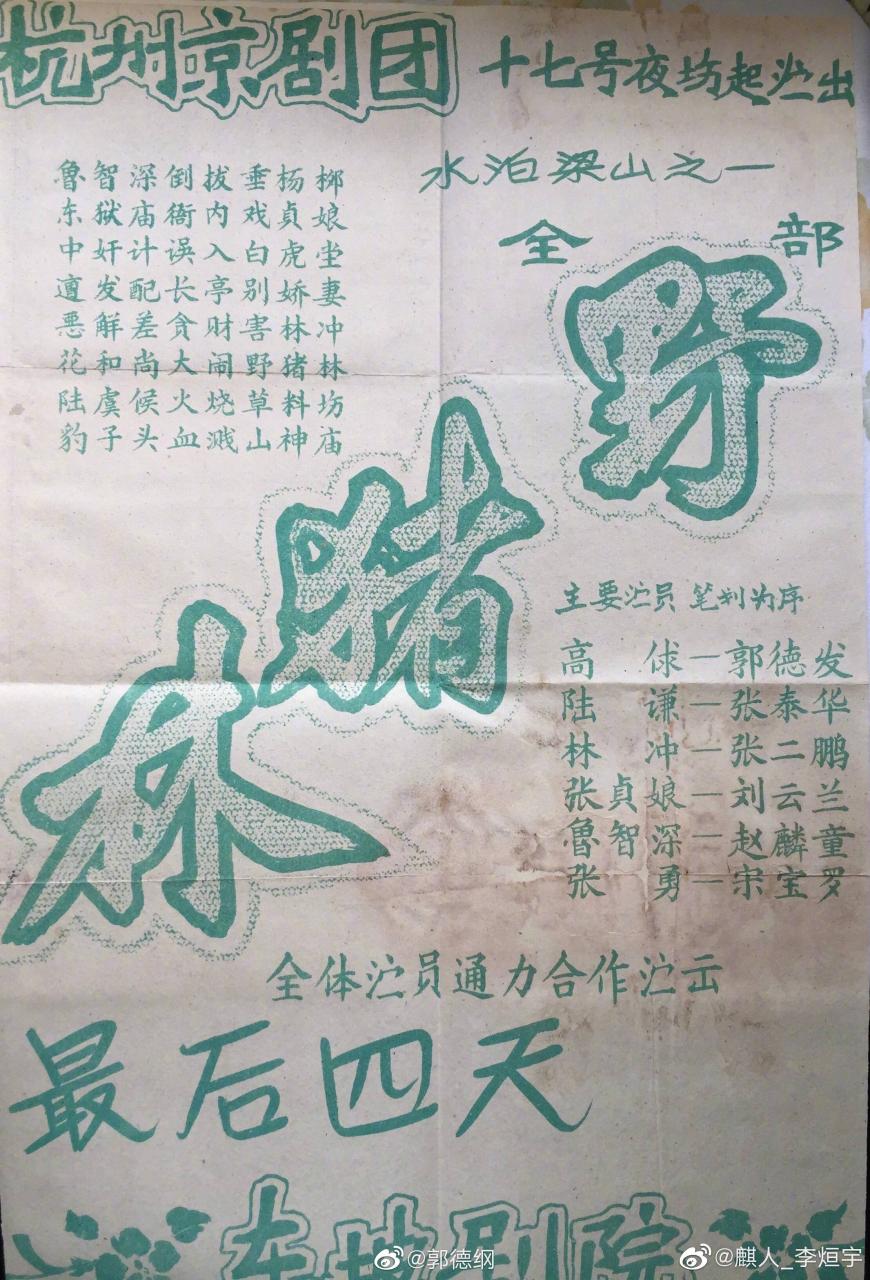 杭州京剧团
十七号夜坊起演出
水泊梁山之一
全部
野猪林
鲁智深倒拔垂杨柳
东狱庙衙内戏贞娘
中奸计误入白虎堂
遭发配长亭别娇妻
恶解差贪财害林冲
花和尚大闹野猪林
陆虞候火烧草料坊
豹子头血溅山神庙
主要演员 笔划为序
高俅—郭德发
陆谦—张泰华
林冲—张二鹏
张贞娘—刘云兰
鲁智深—赵麟童
张勇—宋宝罗
全体演员通力合作演出
最后四天
东坡剧院
@郭德纲
@麒人_李烜宇